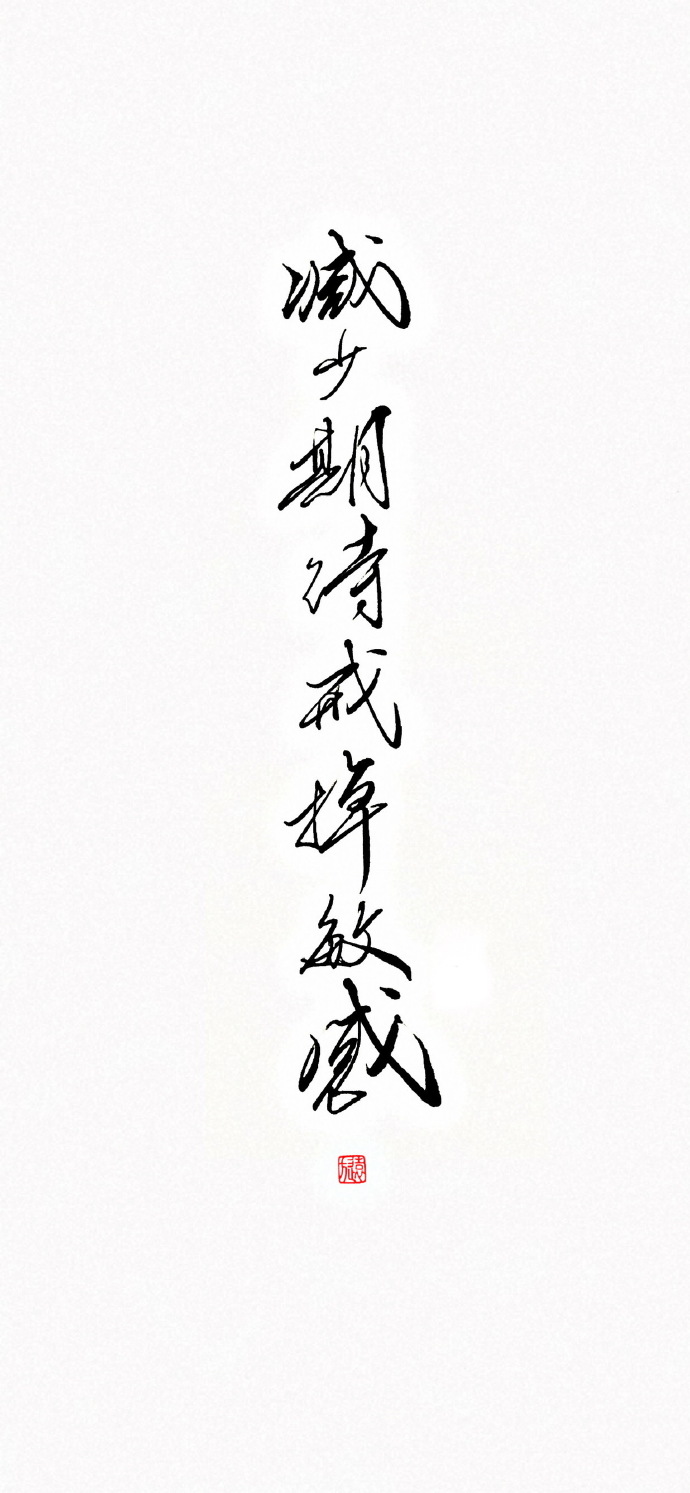 减少期待戒掉敏感